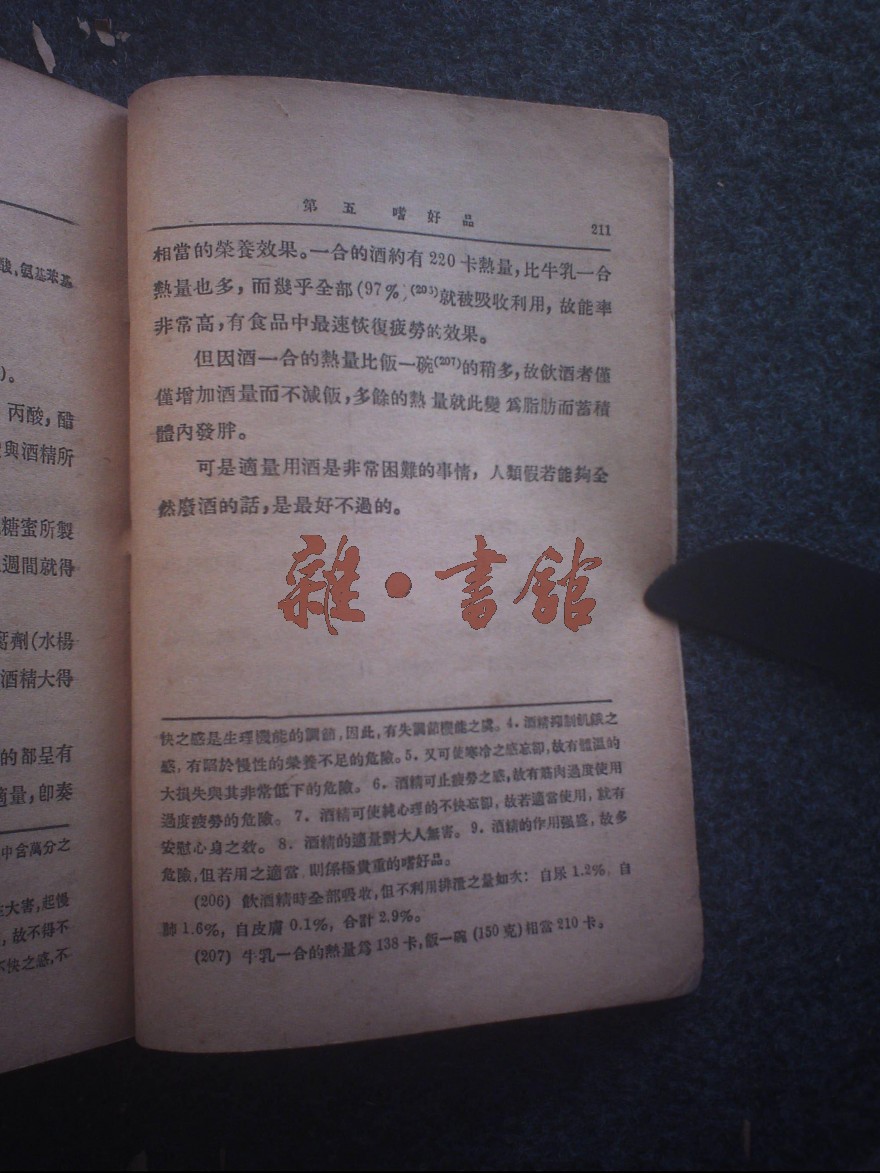 酸,氨基苯基
)。
丙酸,醋
與酒精所
糖蜜所製
週間就得
腐劑(水楊
酒精大得
的都呈有
適量,卽奏
中含萬分之
大害,起慢
,故不得不
快之感,不
第五 嗜好品
211
相當的榮養效果。一合的酒約有 220 卡熱量,比牛乳一合
熱量也多,而幾乎全部(97%)(205)就被吸收利用,故能率
非常高,有食品中最速恢復疲勞的效果。
但因酒一合的熱量比飯一碗(207)的稍多,故飲酒者僅
僅增加酒量而不減飯,多餘的熱量就此變爲脂肪而蓄積
體內發胖。
可是適量用酒是非常困難的事情,人類假若能夠全
然廢酒的話,是最好不過的。
雜·書館
快之感是生理機能的調節,因此,有失調節機能之虞。4. 酒精抑制飢餓之
感,有陷於慢性的榮養不足的危險。5. 又可使寒冷之感忘卻,故有體溫的
大損失與其非常低下的危險。6. 酒精可止疲勞之感,故有筋肉過度使用
過度疲勞的危險。7. 酒精可使純心理的不快忘卻,故若適當使用,就有
安慰心身之效。8. 酒精的適量對大人無害。9. 酒精的作用强盛,故多
危險,但若用之適當,則係極貴重的嗜好品。
(206) 飲酒精時全部吸收,但不利用排泄之量如次:自尿 1.2%,自
肺 1.6%,自皮膚 0.1%,合計 2.9%。
(207) 牛乳一合的熱量爲 138 卡,飯一碗 (150 克)相當 210 卡。